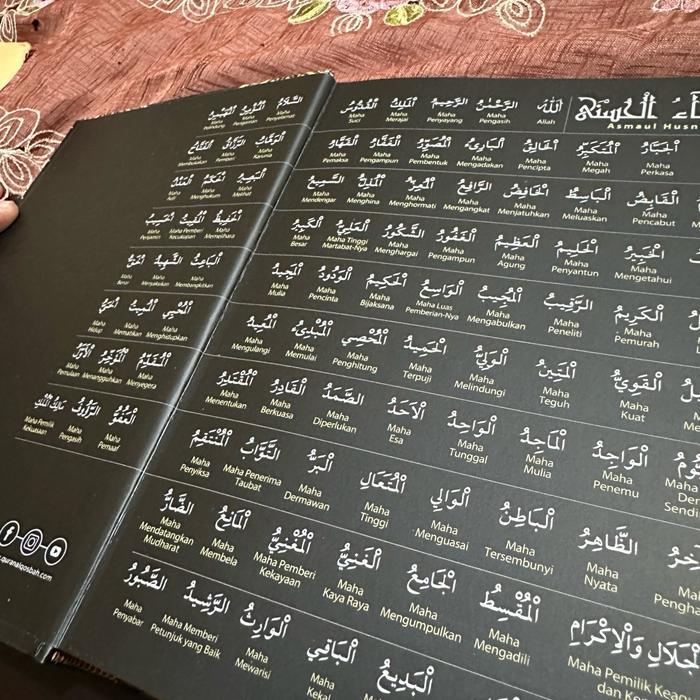 أَسْمَاءُ الْحُسْنَى
Asmaul Husna
اللهُ الرَّحْمٰنُ الرَّحِيْمُ الْمَلِكُ الْقُدُّوْسُ السَّلَامُ الْمُؤْمِنُ الْمُهَيْمِنُ
Allah Maha Pengasih Maha Penyayang Maha Merajai Maha Suci Maha Penyelamat Maha Pengaman Maha Pelindung
الْجَبَّارُ الْمُتَكَبِّرُ الْخَالِقُ الْبَارِىءُ الْمُصَوِّرُ الْغَفَّارُ الْقَهَّارُ الْوَهَّابُ الرَّزَّاقُ الْفَتَّاحُ
Maha Perkasa Maha Megah Maha Pencipta Maha Mengadakan Maha Pembentuk Maha Pengampun Maha Pemaksa Maha Karunia Maha Pemberi Maha Membukakan
الْقَابِضُ الْبَاسِطُ الْخَافِضُ الرَّافِعُ الْمُعِزُّ الْمُذِلُّ السَّمِيْعُ الْبَصِيْرُ الْحَكَمُ الْعَدْلُ
Maha Pencabut Maha Meluaskan Maha Menjatuhkan Maha Mengangkat Maha Menghormati Maha Menghina Maha Mendengar Maha Melihat Maha Menghukum Maha Adil
الْخَبِيْرُ الْحَلِيْمُ الْعَظِيْمُ الْغَفُوْرُ الشَّكُوْرُ الْعَلِيُّ الْكَبِيْرُ الْحَفِيْظُ الْمُقِيْتُ الْحَسِيْبُ
Maha Mengetahui Maha Penyantun Maha Agung Maha Pengampun Maha Menghargai Maha Tinggi Martabat-Nya Maha Besar Maha Memelihara Maha Pemberi Kecukupan Maha Penjamin
الْكَرِيْمُ الرَّقِيْبُ الْمُجِيْبُ الْوَاسِعُ الْحَكِيْمُ الْوَدُوْدُ الْمَجِيْدُ الْبَاعِثُ الشَّهِيْدُ الْحَقُّ
Maha Pemurah Maha Peneliti Maha Mengabulkan Maha Luas Pemberian-Nya Maha Bijaksana Maha Pencinta Maha Mulia Maha Membangkitkan Maha Menyaksikan Maha Benar
الْقَوِيُّ الْمَتِيْنُ الْوَلِيُّ الْحَمِيْدُ الْمُحْصِي الْمُبْدِىءُ الْمُعِيْدُ الْمُحْيِي الْمُمِيْتُ الْحَيُّ
Maha Kuat Maha Teguh Maha Melindungi Maha Terpuji Maha Penghitung Maha Memulai Maha Mengulangi Maha Menghidupkan Maha Mematikan Maha Hidup
الْوَاجِدُ الْمَاجِدُ الْوَاحِدُ الْاَحَدُ الصَّمَدُ الْقَادِرُ الْمُقْتَدِرُ الْمُقَدِّمُ الْمُؤَخِّرُ الْأَوَّلُ
Maha Penemu Maha Mulia Maha Tunggal Maha Esa Maha Diperlukan Maha Berkuasa Maha Menentukan Maha Menyegera Maha Menangguhkan Maha Pemulaan
الظَّاهِرُ الْبَاطِنُ الْوَالِي الْمُتَعَالِ الْبَرُّ التَّوَّابُ الْمُنْتَقِمُ الْعَفُوُّ الرَّؤُوْفُ مَالِكُ الْمُلْكِ
Maha Nyata Maha Tersembunyi Maha Menguasai Maha Tinggi Maha Dermawan Maha Penerima Taubat Maha Penyiksa Maha Pemaaf Maha Pengasih Maha Pemilik Kekuasaan
الْجَلَالِ وَالْاِكْرَامِ الْمُقْسِطُ الْجَامِعُ الْغَنِيُّ الْمُغْنِيُّ الْمَانِعُ الضَّارُّ
Maha Pemilik Maha Mengadili Maha Mengumpulkan Maha Kaya Raya Maha Pemberi Kekayaan Maha Membela Maha Mendatangkan Mudharat
الْبَدِيْعُ الْبَاقِي الْوَارِثُ الرَّشِيْدُ الصَّبُوْرُ
Maha Maha Kekal Maha Mewarisi Maha Memberi Petunjuk yang Baik Maha Penyabar
.quranalqosbah.com